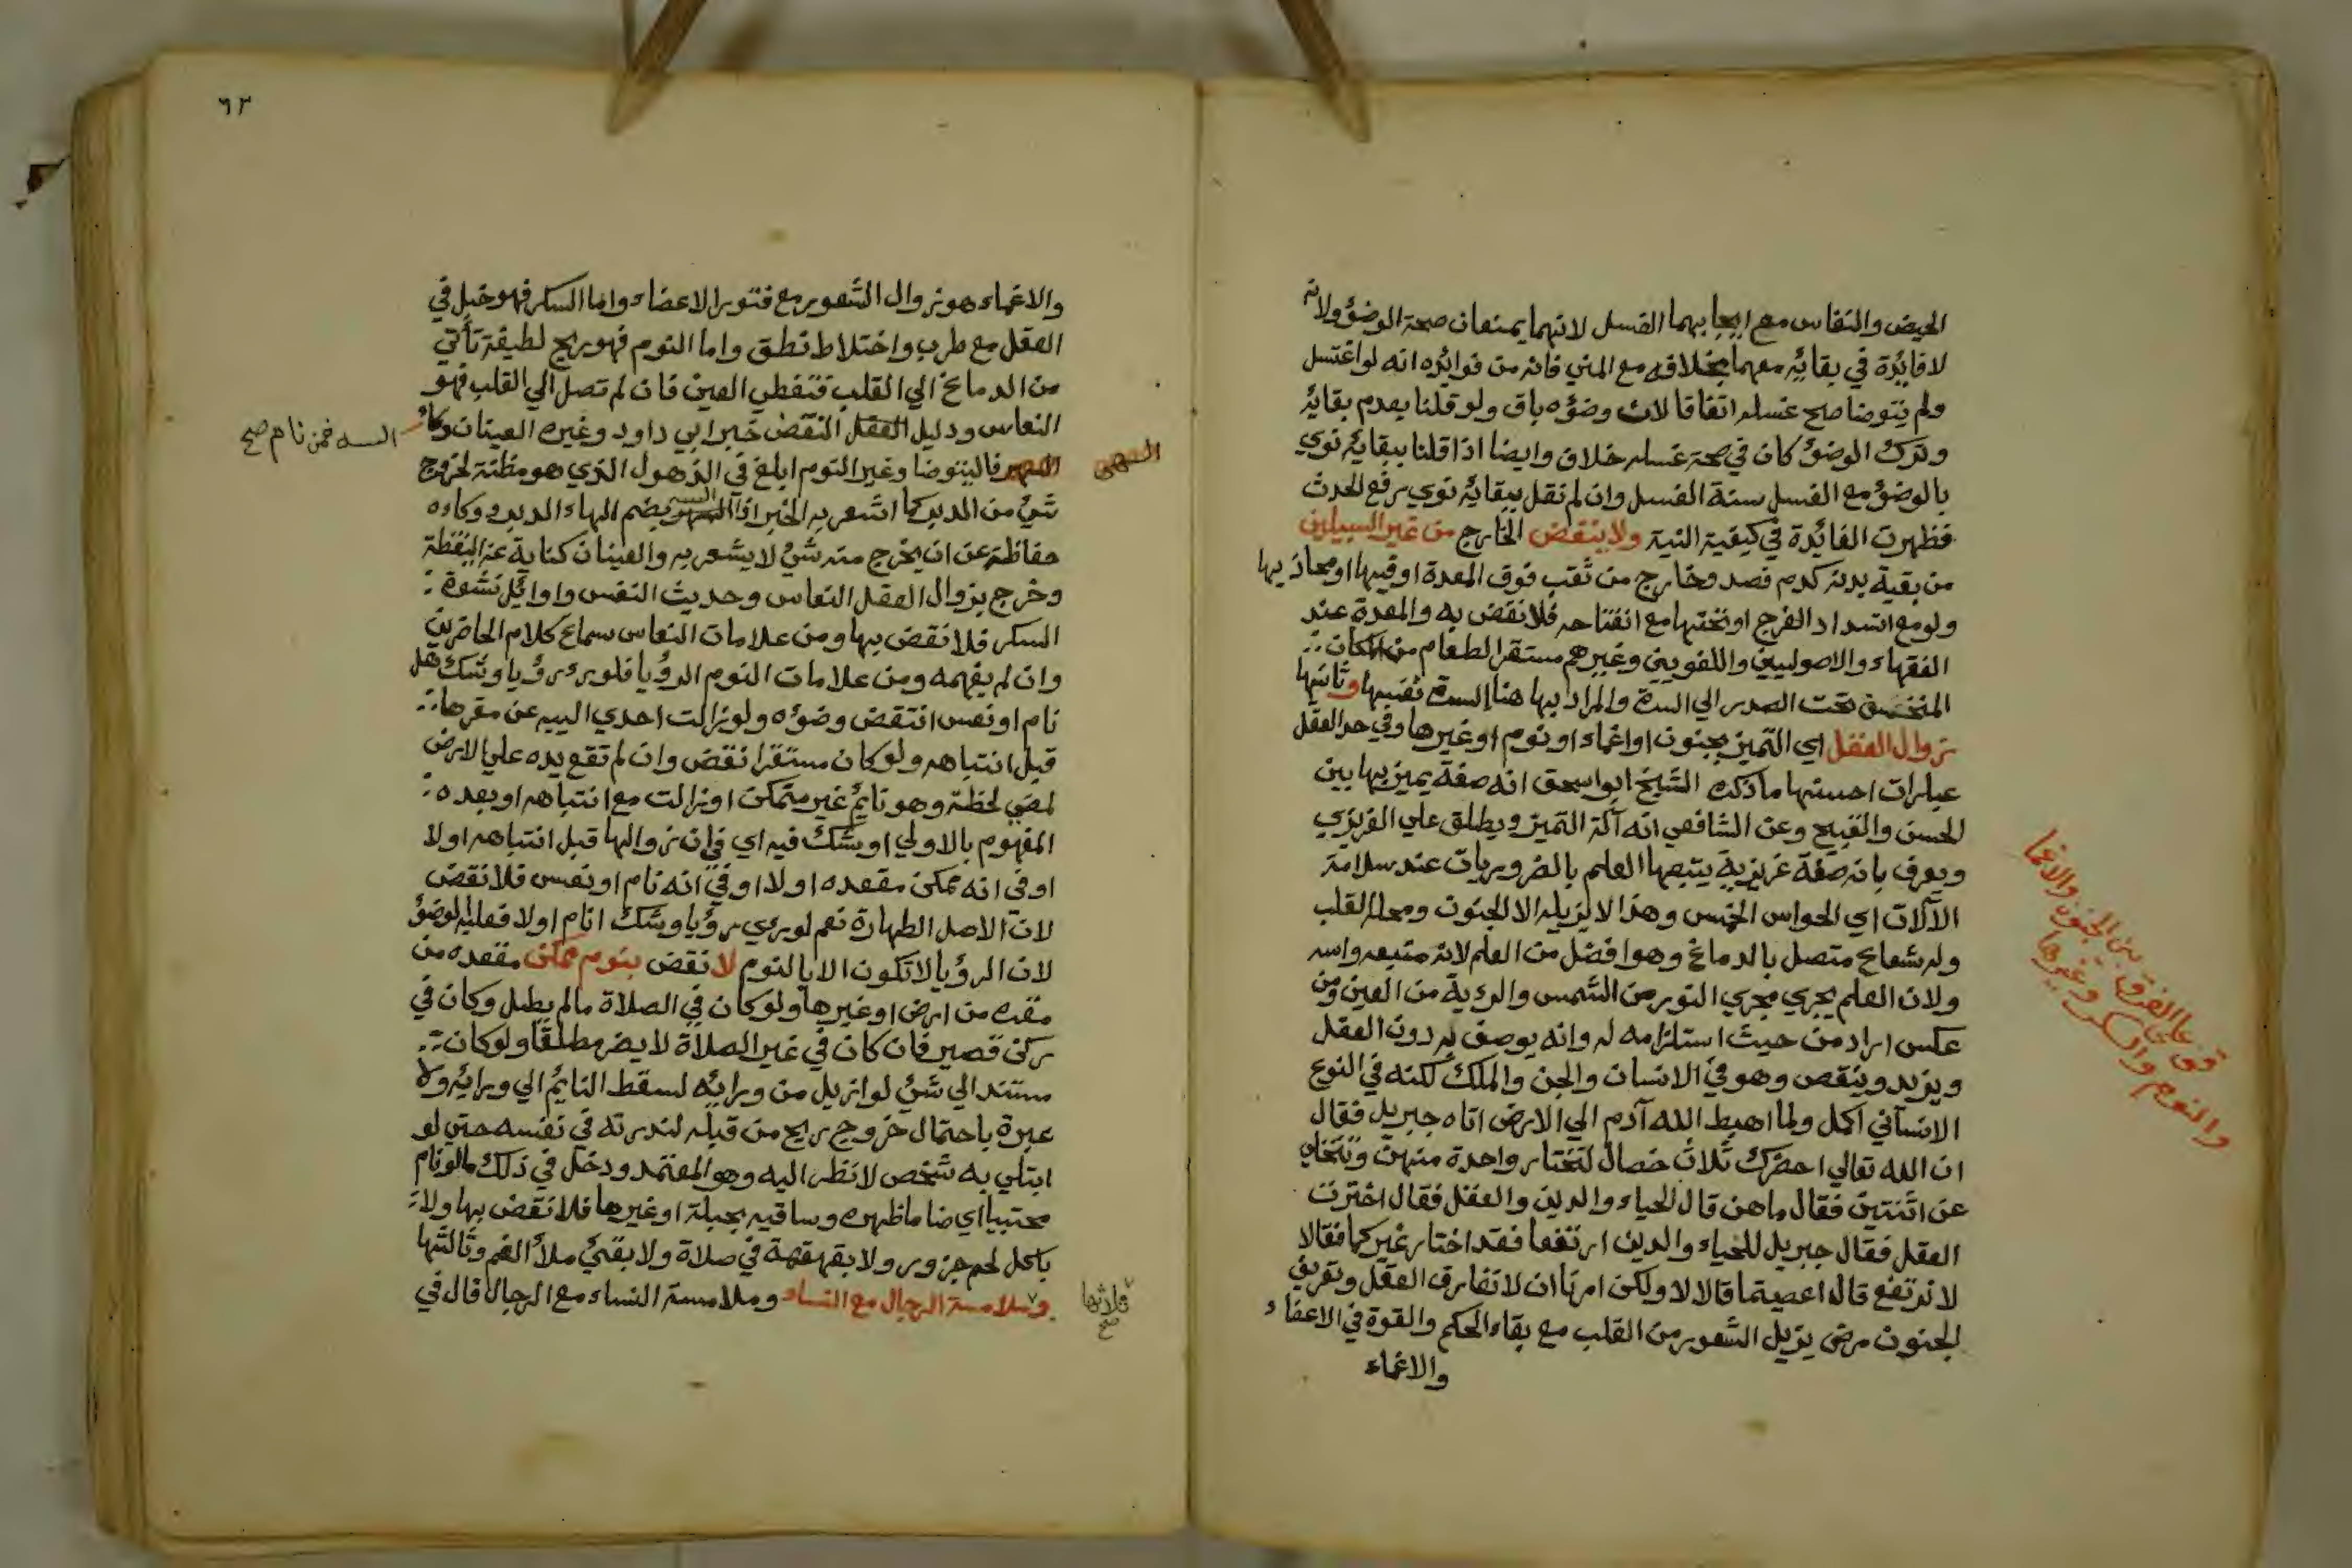 الحيض والنفاس مع ايجابهما الغسل لانهما يمنعان صحة الوضؤ ولانه
لا فائدة في بقائه معهما بخلافه مع المني فانه من فوائده انه لو اغتسل
ولم يتوضا صح غسله اتفاقا لان وضؤه باق ولو قلنا بعدم بقائه
وترك الوضؤ كان في صحة غسله خلاف وايضا اذا قلنا ببقائه نوي
بالوضؤ مع الغسل سنة الغسل وان لم نقل ببقائه نوي رفع الحدث
فظهرت الفائدة في كيفية النية ولا ينقض الخارج من غير السبيلين
من بقية بدنه كدم فصد وخارج من ثقب فوق المعدة او فيها او محاذيها
ولو مع انسداد الفرج او تحتها مع انفتاحه فلا نقض به والمعدة عند
الفقهاء والاصوليين واللغويين وغيرهم مستقر الطعام من المكان
المنخسف تحت الصدر الي السرة والمراد بها هنا السرة نفسها وثانيها
زوال العقل اي التميز بجنون او اغماء او نوم او غيرها وفي حد العقل
عبارات احسنها ما ذكره الشيخ ابو اسحق انه صفة يميز بها بين
الحسن والقبيح وعن الشافعي انه آلة التميز ويطلق علي الغريزي
ويعرف بانه صفة غريزية يتبعها العلم بالضروريات عند سلامة
الآلات اي الحواس الخمس وهذا لا يزيله الا الجنون ومحله القلب
وله شعاع متصل بالدماغ وهو افضل من العلم لانه منبعه واسه
ولان العلم يجري مجري النور من الشمس والرؤية من العين ومن
عكس اراد من حيث استلزامه له وانه يوصف به دون العقل
ويزيد وينقص وهو في الانسان والجن والملك لكنه في النوع
الانساني اكمل ولما اهبط الله آدم الي الارض اتاه جبريل فقال
ان الله تعالي احضرك ثلاث خصال لتختار واحدة منهن وتتخلي
عن اثنتين فقال ما هن قال الحياء والدين والعقل فقال اخترت
العقل فقال جبريل للحياء والدين ارتفعا فقد اختار غيركما فقالا
لا نرتفع قال اعصيتما قالا لا ولكن امرنا ان لا نفارق العقل وتعريف
الجنون مرض يزيل الشعور من القلب مع بقاء الحكم والقوة في الاعضاء
والاغماء
قف علي الفرق بين الجنون والاغما
والنوم والسكر وغيرها
٦٣
والاغماء هو زوال الشعور مع فتور الاعضاء واما السكر فهو خبل في
العقل مع طرب واختلاط نطق واما النوم فهو ريح لطيفة تأتي
من الدماغ الي القلب فتغطي العين فان لم تصل الي القلب فهو
النعاس ودليل العقل النقض خبر ابي داود وغيره العينان وكاء
السه فمن نام صح
فاليتوضا وغير النوم ابلغ في الذهول الذي هو مظنة لخروج
شئ من الدبر كما اشعر به الخبر اذ السه بضم الهاء الدبر ووكاوه
حفاظه عن ان يخرج منه شئ لا يشعر به والعينان كناية عن اليقظة
وخرج بزوال العقل النعاس وحديث النفس واوائل نشوة
السكر فلا نقض بها ومن علامات النعاس سماع كلام الحاضرين
وان لم يفهمه ومن علامات النوم الرؤيا فلو رءي رؤيا وشك هل
نام او نعس انتقض وضؤه ولو زالت احدي الييه عن مقرها
قبل انتباهه ولو كان مستقرا نقض وان لم تقع يده علي الارض
لمضي لحظة وهو نائم غير متمكن او زالت مع انتباهه او بعده
المفهوم بالاولي او شك فيه اي في ان زوالها قبل انتباهه او لا
او في انه ممكن مقعده او لا او في انه نام او نعس فلا نقض
لان الاصل الطهارة نعم لو رءي رؤيا وشك انام او لا فعليه الوضؤ
لان الرؤيا لا تكون الا بالنوم لا نقض بنوم ممكن مقعده من
مقره من ارض او غيرها ولو كان في الصلاة ما لم يطل وكان في
ركن قصير فان كان في غير الصلاة لا يضر مطلقا ولو كان
مستند الي شئ لو ازيل من ورائه لسقط النائم الي ورائه ولا
عبرة باحتمال خروج ريح من قبله لندرته في نفسه حتي لو
ابتلي به شخص لا نظر اليه وهو المعتمد ودخل في ذلك ما لو نام
محتبيا اي ضاما ظهره وساقيه بحبلة او غيرها فلا نقض بها ولا
باكل لحم جزور ولا بقهقهة في صلاة ولا بقئ ملأ الفم وثالثها
وملامسة الرجال مع النساء وملامسة النساء مع الرجال قال في
صح